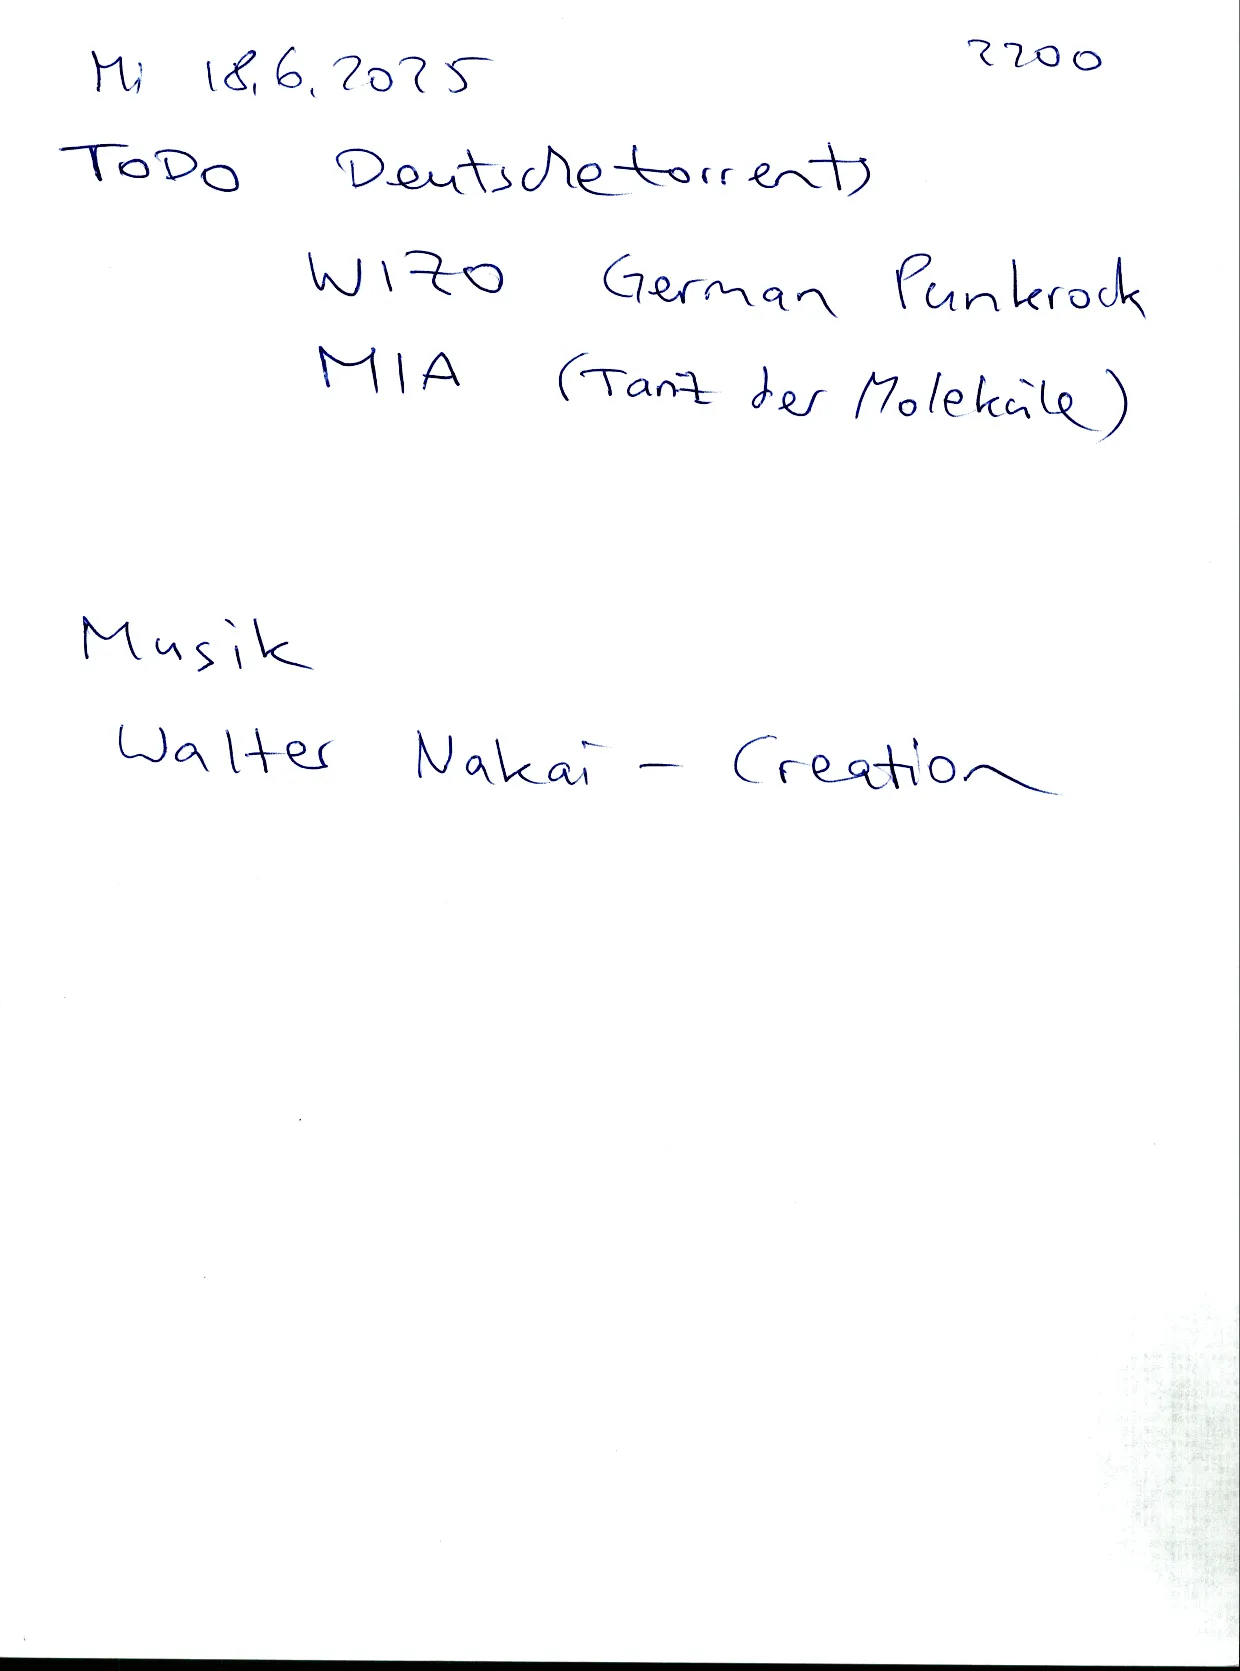 Mi 18.6.2025 2200
ToDo Deutschetorrents
WIZO German Punkrock
MIA (Tanz der Moleküle)
Musik
Walter Nakai - Creation